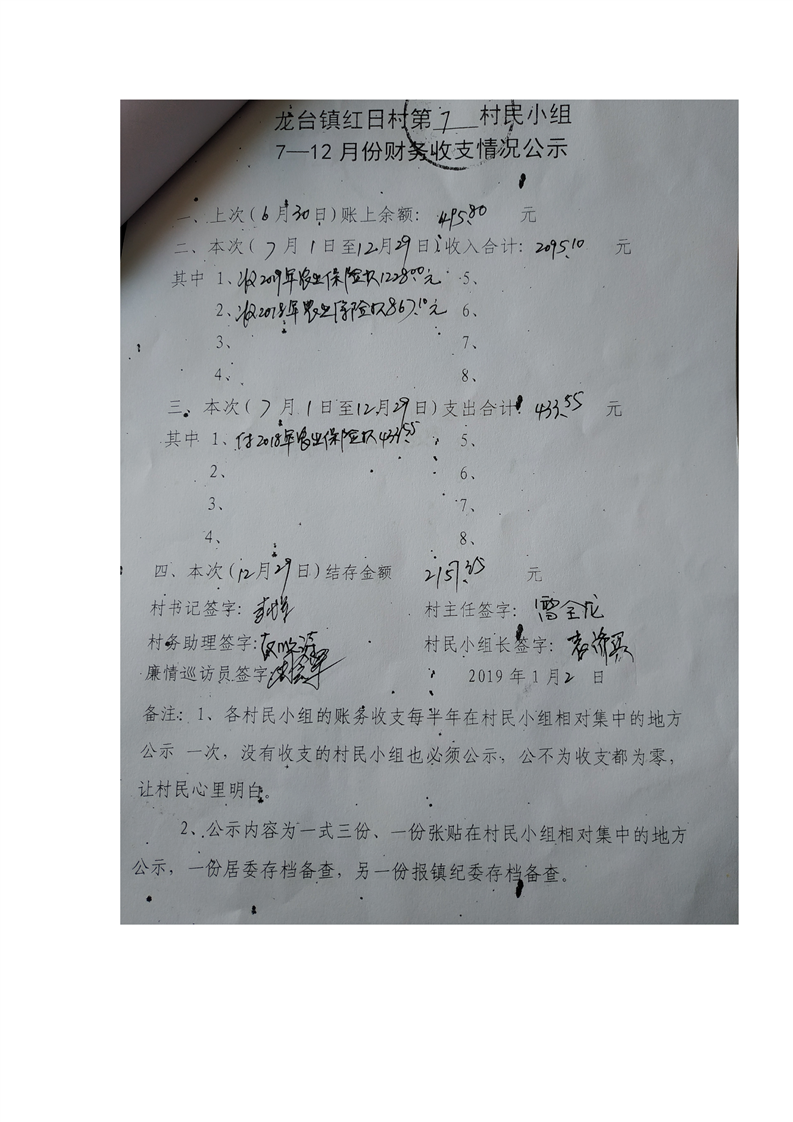 龙台镇红日村第 7 村民小组
7—12月份财务收支情况公示
一、上次(6月30日)账上余额: 495.80 元
二、本次(7月1日至12月29日)收入合计: 2095.10 元
其中 1、收2019年农业保险款1228.00元 5、
2、收2018年农业保险款867.10元 6、
3、 7、
4、 8、
三、本次(7月1日至12月29日)支出合计: 433.55 元
其中 1、付2018年农业保险款433.55 5、
2、 6、
3、 7、
4、 8、
四、本次(12月29日)结存金额 2157.35 元
村书记签字: 村主任签字: 雷全龙
村务助理签字: 村民小组长签字:
廉情巡访员签字: 2019年1月2日
备注: 1、各村民小组的账务收支每半年在村民小组相对集中的地方
公示 一次,没有收支的村民小组也必须公示,公不为收支都为零,
让村民心里明白。
2、公示内容为一式三份、一份张贴在村民小组相对集中的地方
公示,一份居委存档备查,另一份报镇纪委存档备查。